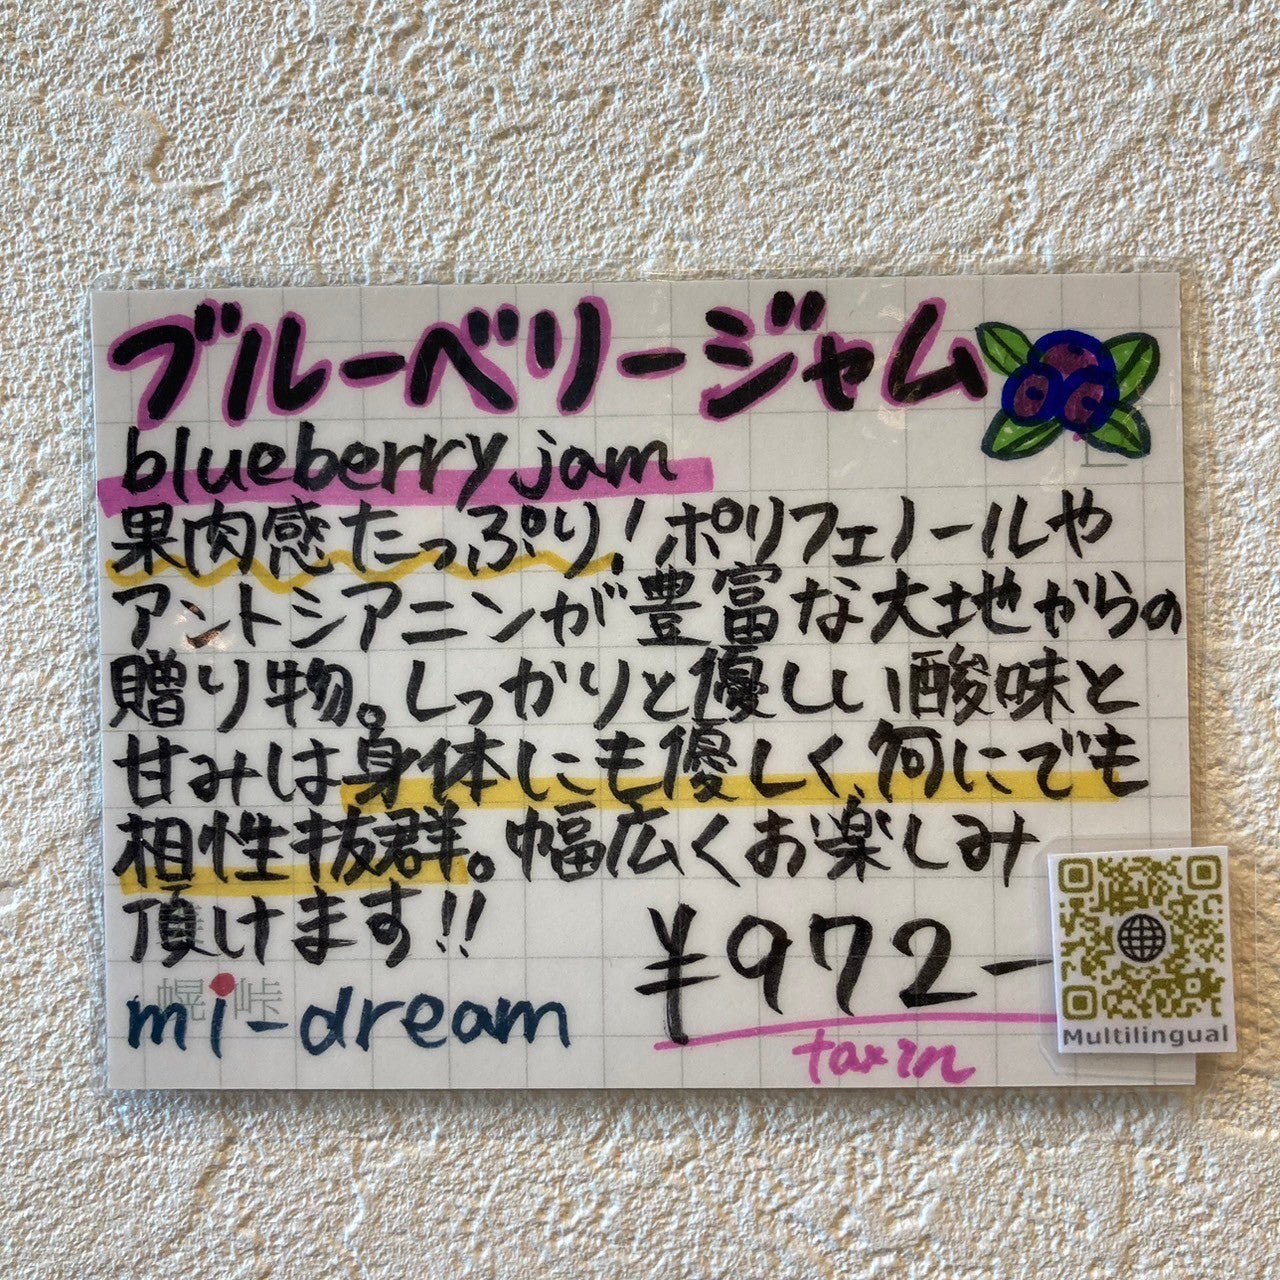 ブルーベリージャム
blueberry jam
果肉感たっぷり!ポリフェノールや
アントシアニンが豊富な大地からの
贈り物。しっかりと優しい酸味と
甘みは身体にも優しく何にでも
相性抜群。幅広くお楽しみ
頂けます!!
¥972-
tax in
mi-dream
Multilingual